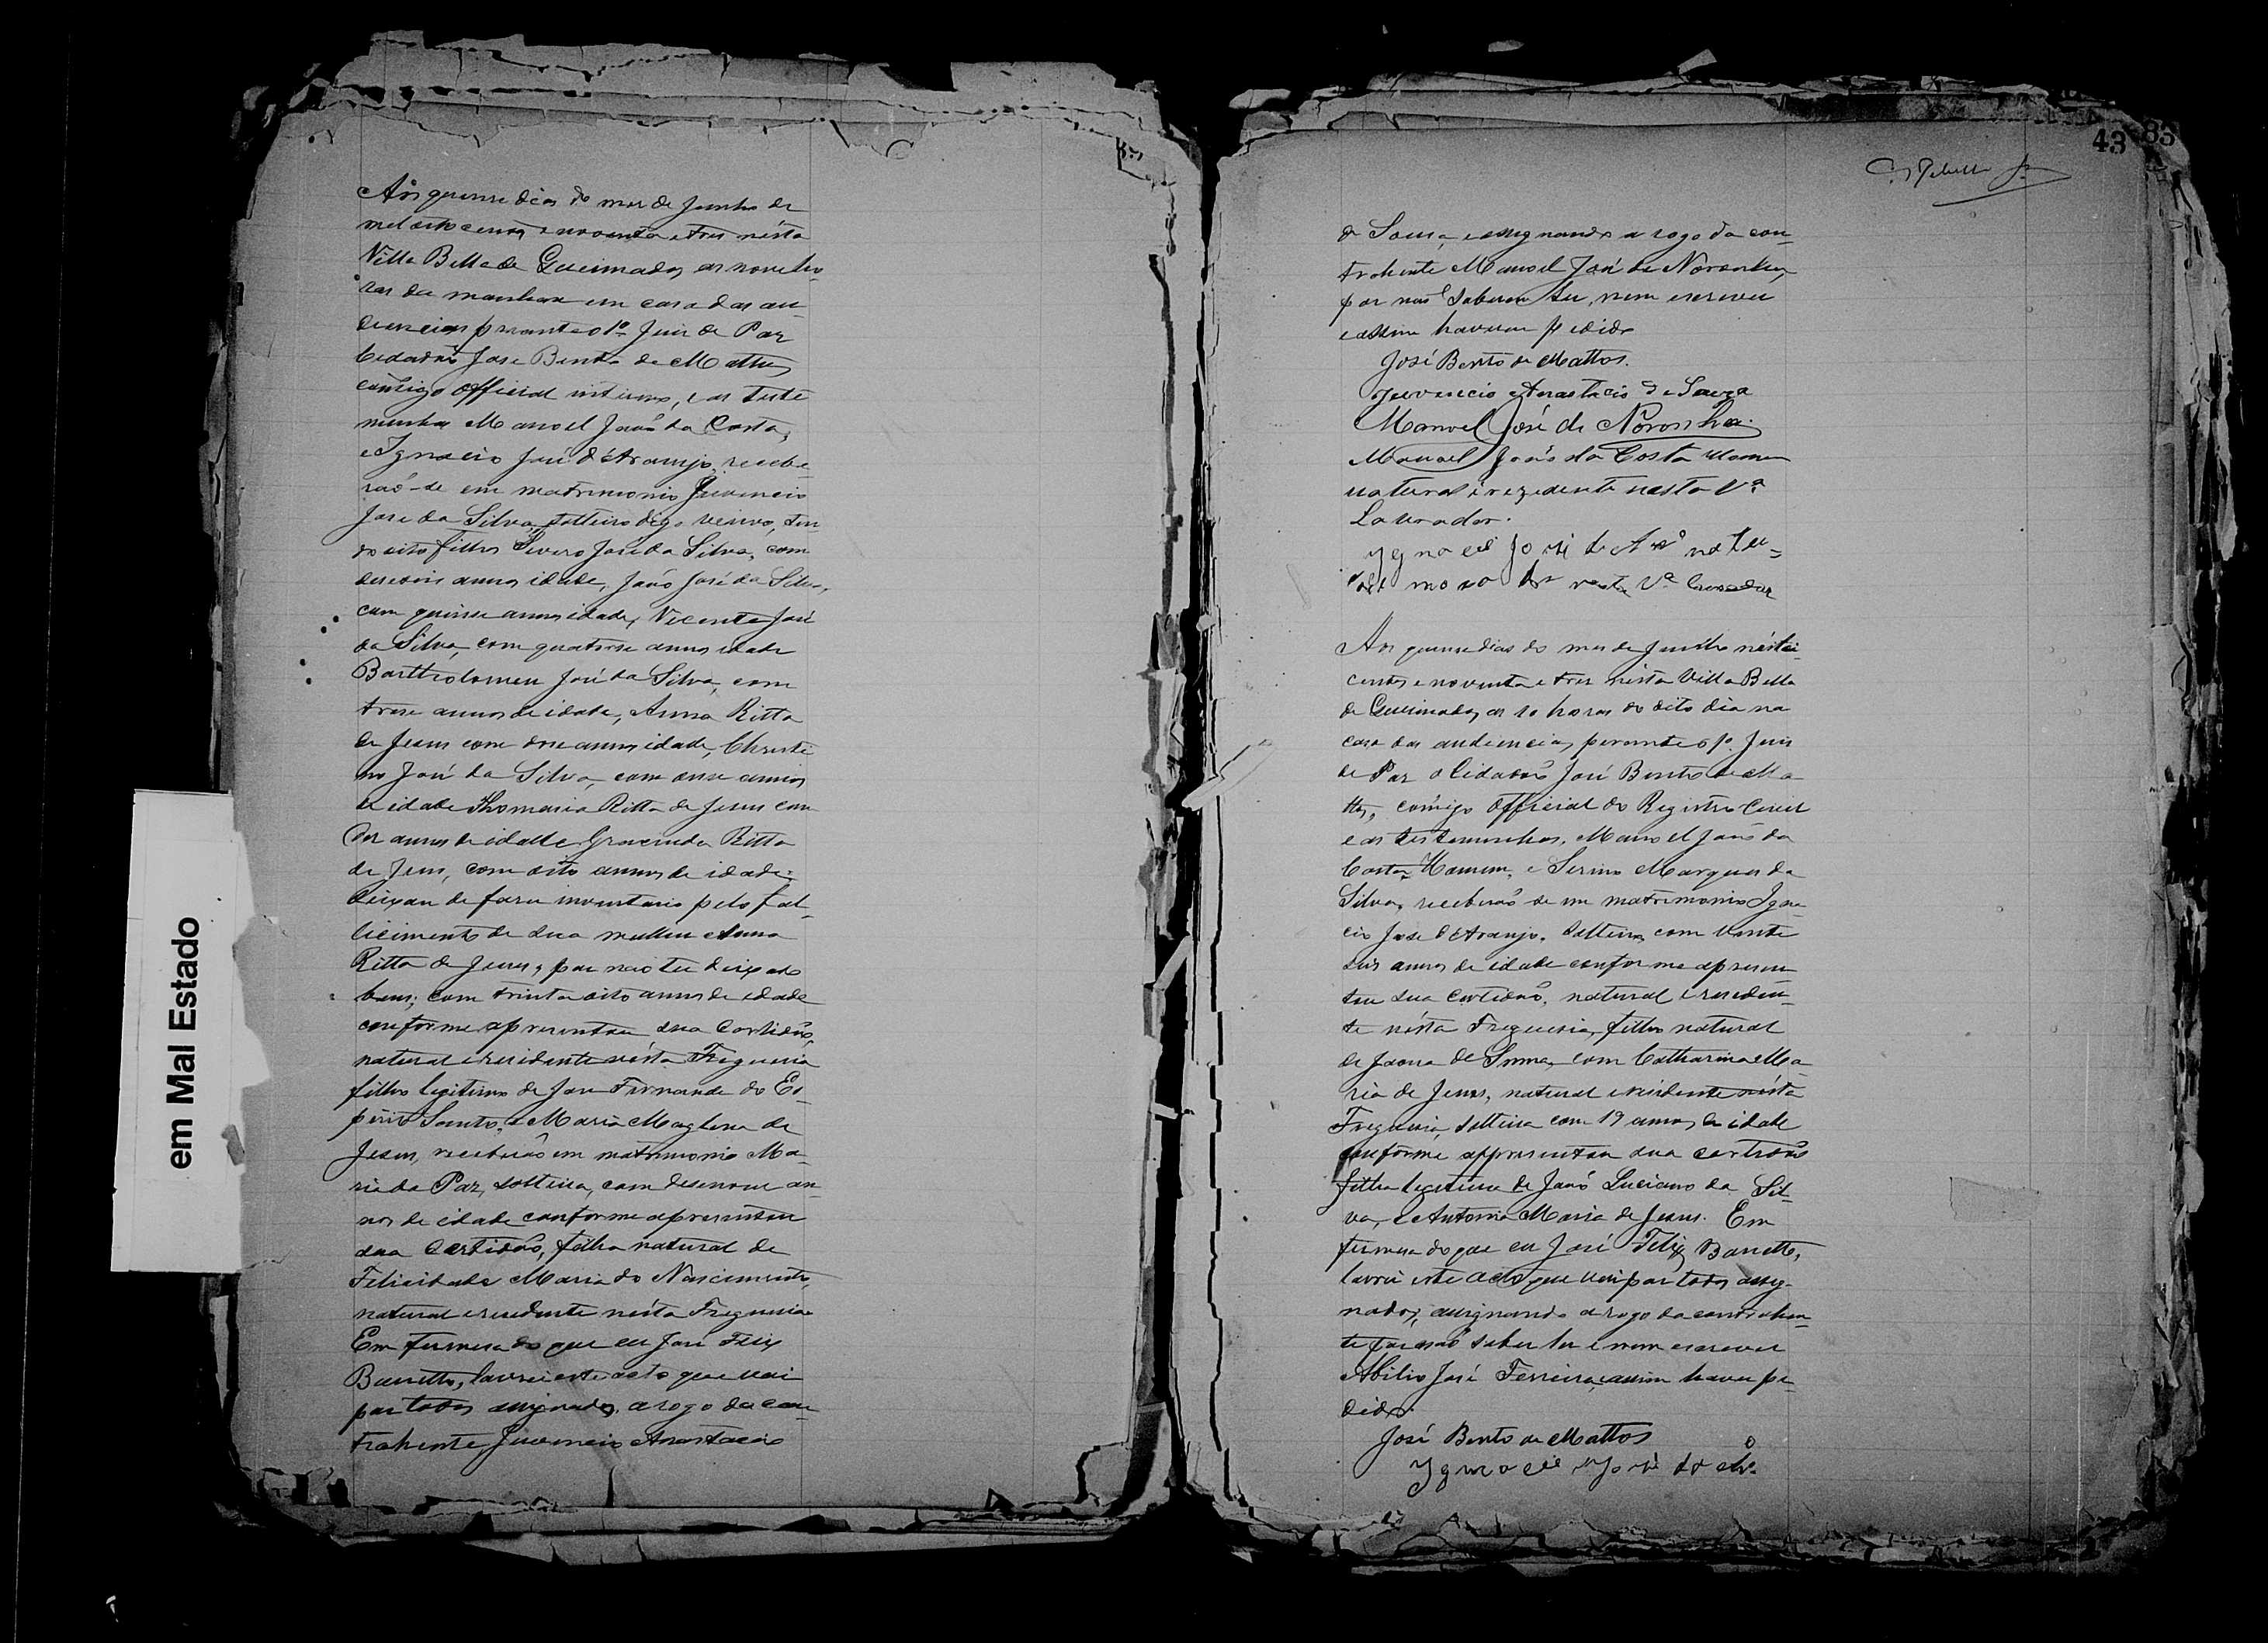 Aos quinse dias do mes de Junho de
mil oito centos e noventa e tres nésta
Villa Bella de Queimadas as nove ho-
ras da manhan em casa das au-
diencias perante o 1º Juiz de Paz
Cidadão José Bento de Mattos
comigo Official interino, e as teste
munhas Manoel João da Costa,
e Ignacio José d'Araujo, recebe-
rão-se em matrimonio Juvencio
Jose da Silva, solteiro digo viuvo, ten-
do oito filhos Severo José da Silva, com
deseseis annos idade, João José da Silva,
com quinse annos idade, Vicente José
da Silva, com quatorse annos idade
Bartholomeu José da Silva, com
trese annos de idade, Anna Ritta
de Jesus com dose annos idade, Christi
no José da Silva, com onse annos
de idade Thomasia Ritta de Jesus com
dez annos de idade Gracinda Ritta
de Jesus, com oito annos de idade;
deixou de faser inventario pelo fal-
licimento de sua mulher Anna
Ritta de Jesus, por não ter deixado
bens; com trinta oito annos de idade
conforme apresentou sua Certidão,
natural e residente nésta Freguesia
filho legitimo de José Fernande do Es-
pirito Santo, e Maria Maglena de
Jesus, receberão em matrimonio Ma-
ria da Paz, solteira, com desenove an-
nos de idade conforme apresentou
sua Certidão, filha natural de
Felicidade Maria do Nascimento,
natural e residente nésta Freguesia
Em firmesa do que eu José Felix
Barretto, lavrei este acto que vai
por todos assignados, a rogo da con-
trahente Juvencio Anastacio
43 83
de Sousa, e assignando a rogo da con-
trahente Manoel José de Nóronha,
por não saberem ler, nem escrever
e assim haverem pedido
José Bento de Mattos.
Juvencio Anastacio de Souza
Manoel José de Nóronha.
Manoel João da Costa Homem
natural e rezidente nesta Vª
Lavrador.
Ygnacio José de Arº natu-
nesta Vª Lavrador
Aos quinse dias do mes de Junho néstei-
centos e noventa e tres nésta Villa Bella
de Queimadas, as 10 horas do dito dia na
casa das audiencias, perante o 1º Juis
de Paz o Cidadão José Bento de Ma
ttos, comigo Official do Registro Civil
e as testemunhas, Manoel João da
Costa Homem, e Serino Marques da
Silva, receberão-se em matrimonio Igna-
cio Jose d'Araujo, solteiro com vinte
seis annos de idade conforme apresen
tou sua Certidão, natural e residen-
te nésta Freguesia, filho natural
de Joana de Senna, com Catharina Ma-
ria de Jesus, natural e residente nésta
Freguesia, solteira com 19 annos de idade
conforme appresentou sua certidão
filha legitima de João Luciano da Sil-
va, e Antonia Maria de Jesus. Em
firmesa do que eu José Felix Barretto,
lavrei este acto que vai por todos assig-
nados, assignando a rogo da contrahen-
te por não saber ler e nem escrever
Abilio José Ferreira, e assim haver pe-
dido.
José Bento de Mattos
Ygnacio José de Arº
em Mal Estado